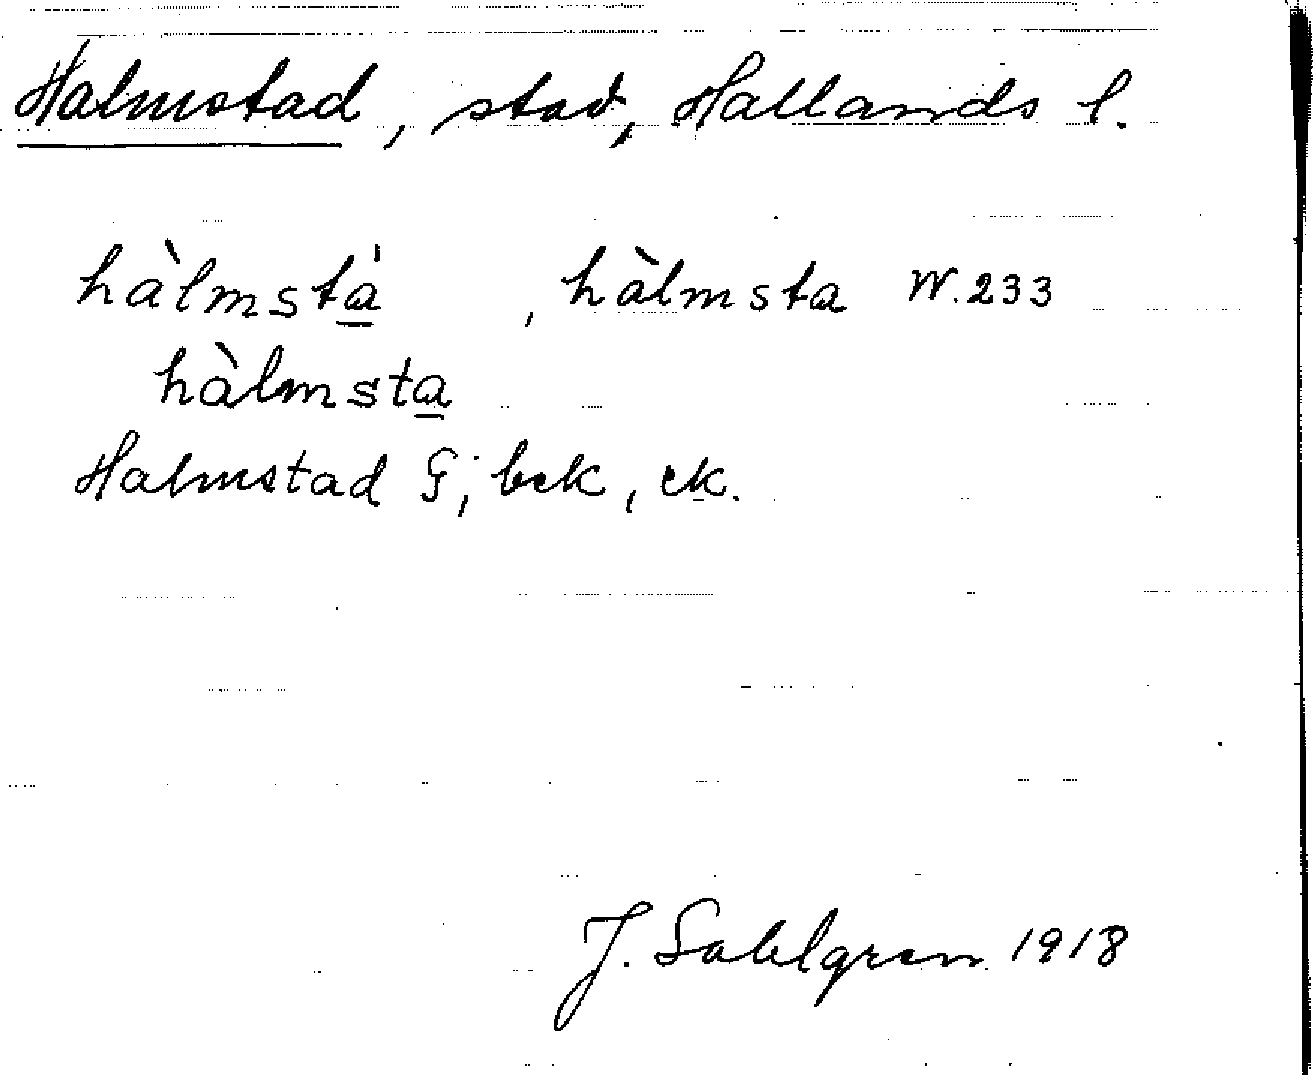 Halmstad, stad, Hallands l.
hàlmsta̲̍ , hàlmsta W. 233
hàlmsta̲
Halmstad G; bek, ek.
J. Sahlgren 1918